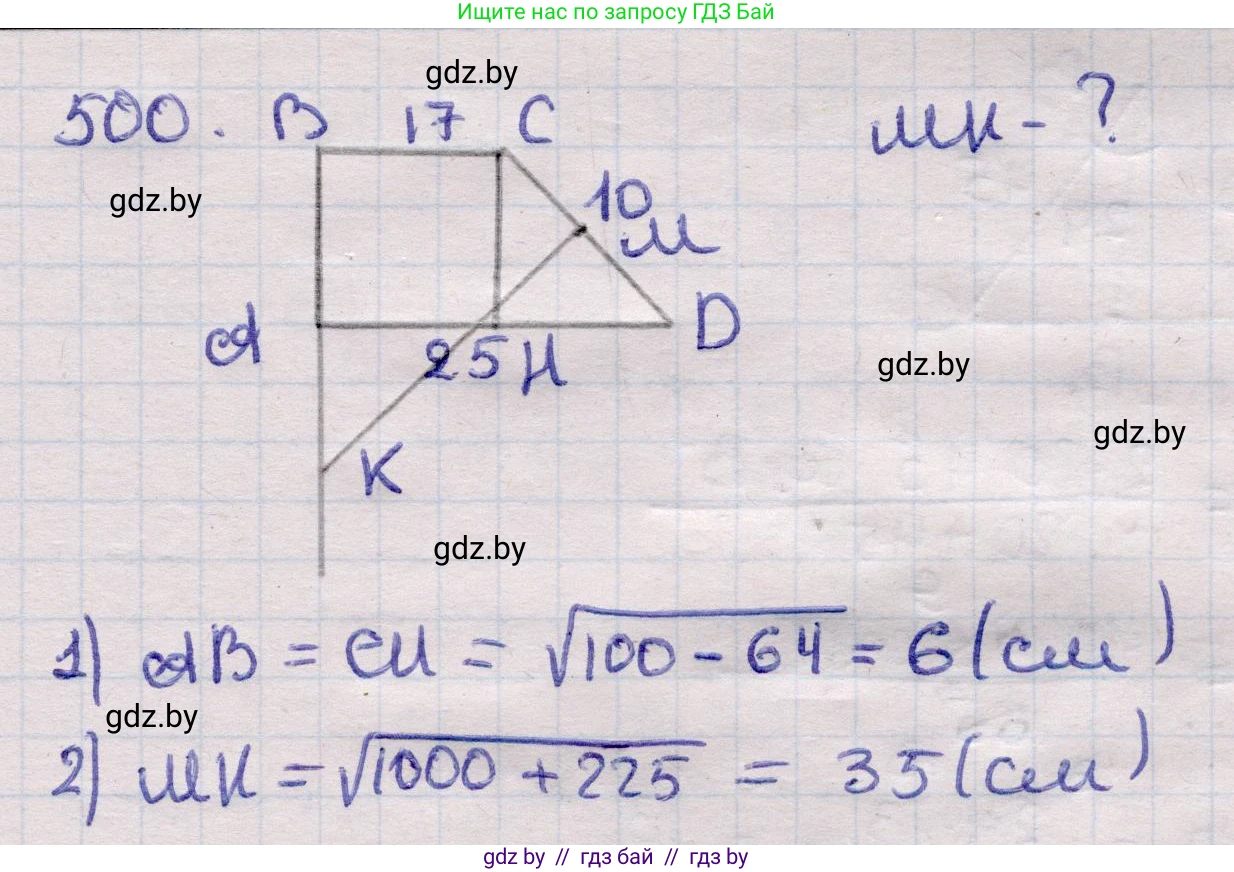 Ищите нас по запросу ГДЗ Бай
gdz.by
500. B 17 C МК - ?
gdz.by
10
М
A
25 H
D
gdz.by
gdz.by
K
gdz.by
1) AB = CH = √100 - 64 = 6 (см)
gdz.by
2) МК = √1000 + 225 = 35 (см)
gdz by // гдз бай // гдз by